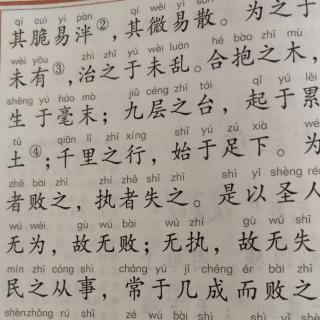 qí cuì yì pàn qí wēi yì sàn
其脆易泮②,其微易散。为之于
wèi yǒu zhì zhī yú wèi luàn hé bào zhī mù
未有③,治之于未乱。合抱之木,
shēng yú háo mò jiǔ céng zhī tái qǐ yú
生于毫末;九层之台,起于累
tǔ qiān lǐ zhī xíng shǐ yú zú xià
土④;千里之行,始于足下。为
zhě bài zhī zhí zhě shī zhī
者败之,执者失之。是以圣人
wú wéi gù wú bài wú zhí gù wú shī
无为,故无败;无执,故无失
mín zhī cóng shì cháng yú jī chéng ér bài zhī
民之从事,常于几成而败之
shènzhōng rú shǐ zé wú bài shì